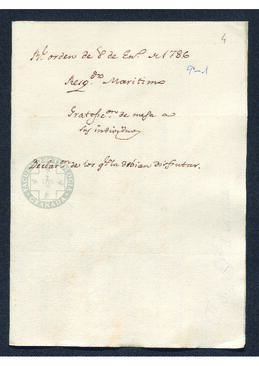 4
Rl orden de 8 de Eno. de 1786
9-1
Resgdo Maritimo
Gratificon. de mesa a
sus individuos
Declaron. de los qe. la debian disfrutar.
FACULTAD DE
GRANADA